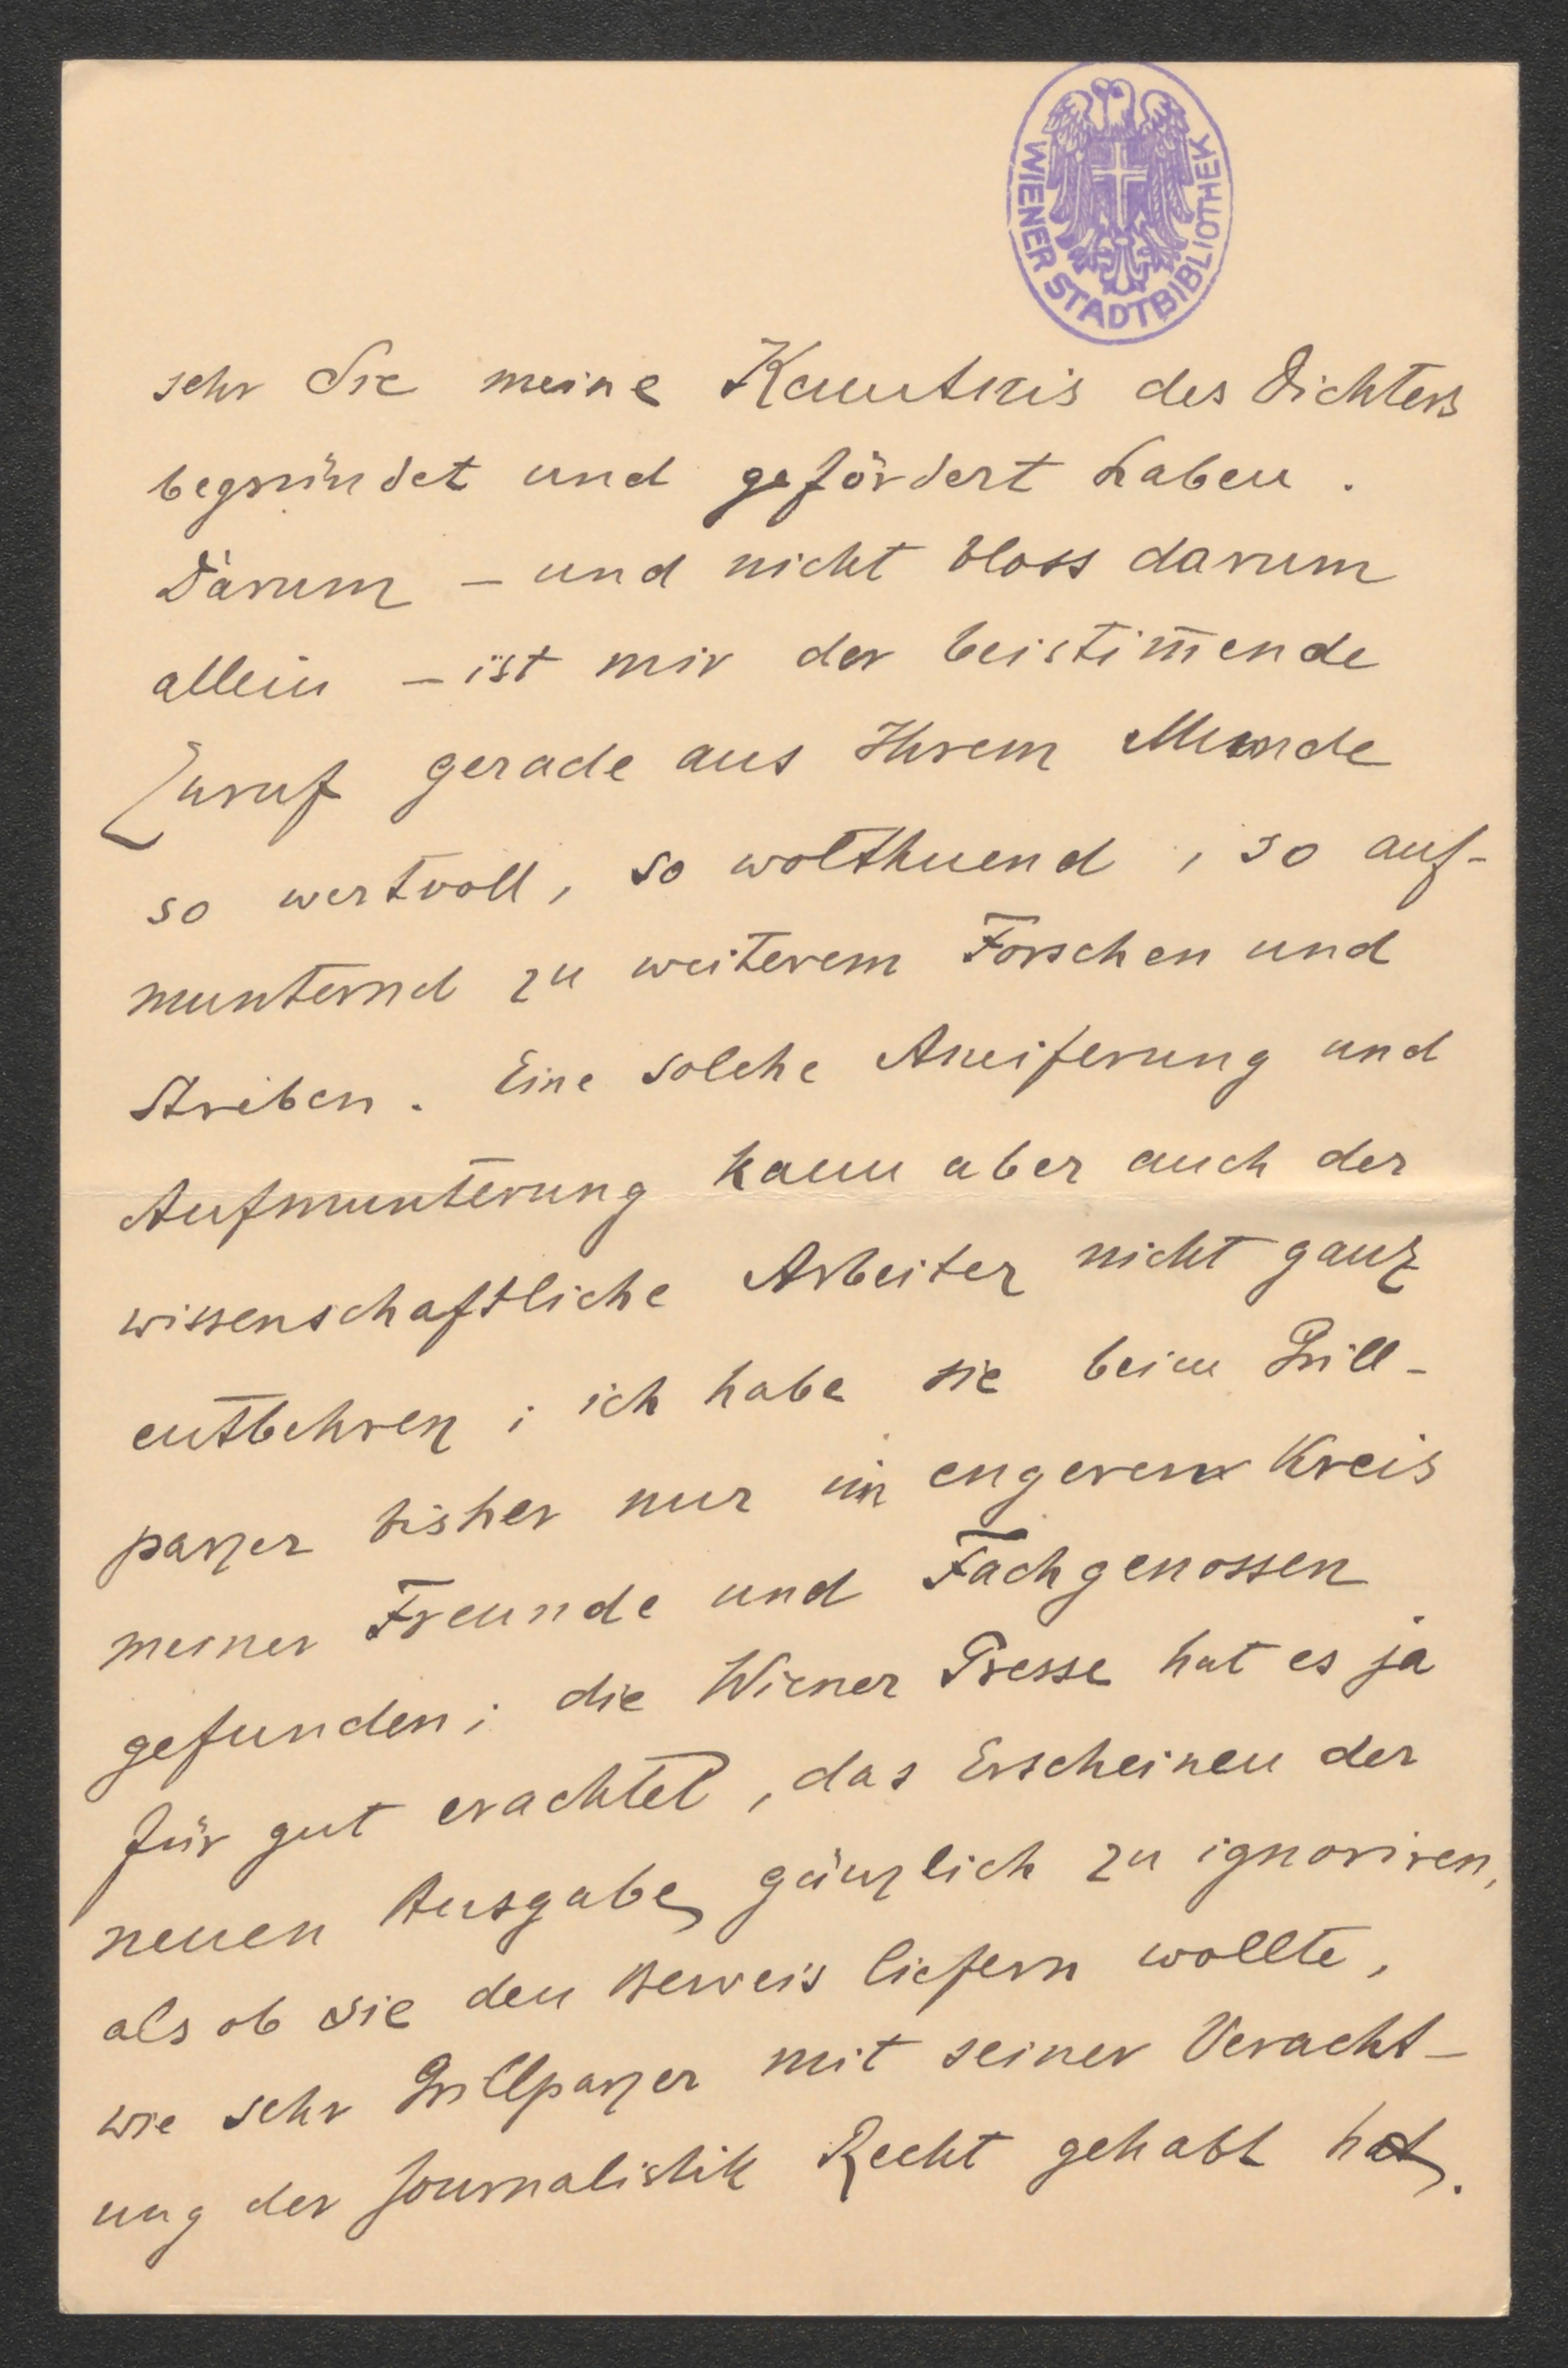 WIENER STADTBIBLIOTHEK
sehr Sie meine Kenntnis des Dichters
begründet und gefördert haben.
Darum – und nicht bloss darum
allein – ist mir der beistim̄ende
Zuruf gerade aus Ihrem Munde
so wertvoll, so wolthuend, so auf-
munternd zu weiterem Forschen und
Streben. Eine solche Aneiferung und
Aufmunterung kann aber auch der
wissenschaftliche Arbeiter nicht ganz
entbehren; ich habe sie beim Grill-
parzer bisher nur im engeren Kreis
meiner Freunde und Fachgenossen
gefunden; die Wiener Presse hat es ja
für gut erachtet, das Erscheinen der
neuen Ausgabe gänzlich zu ignoriren,
als ob sie den Beweis liefern wollte,
wie sehr Grillparzer mit seiner Veracht-
ung der Journalistik Recht gehabt hat.